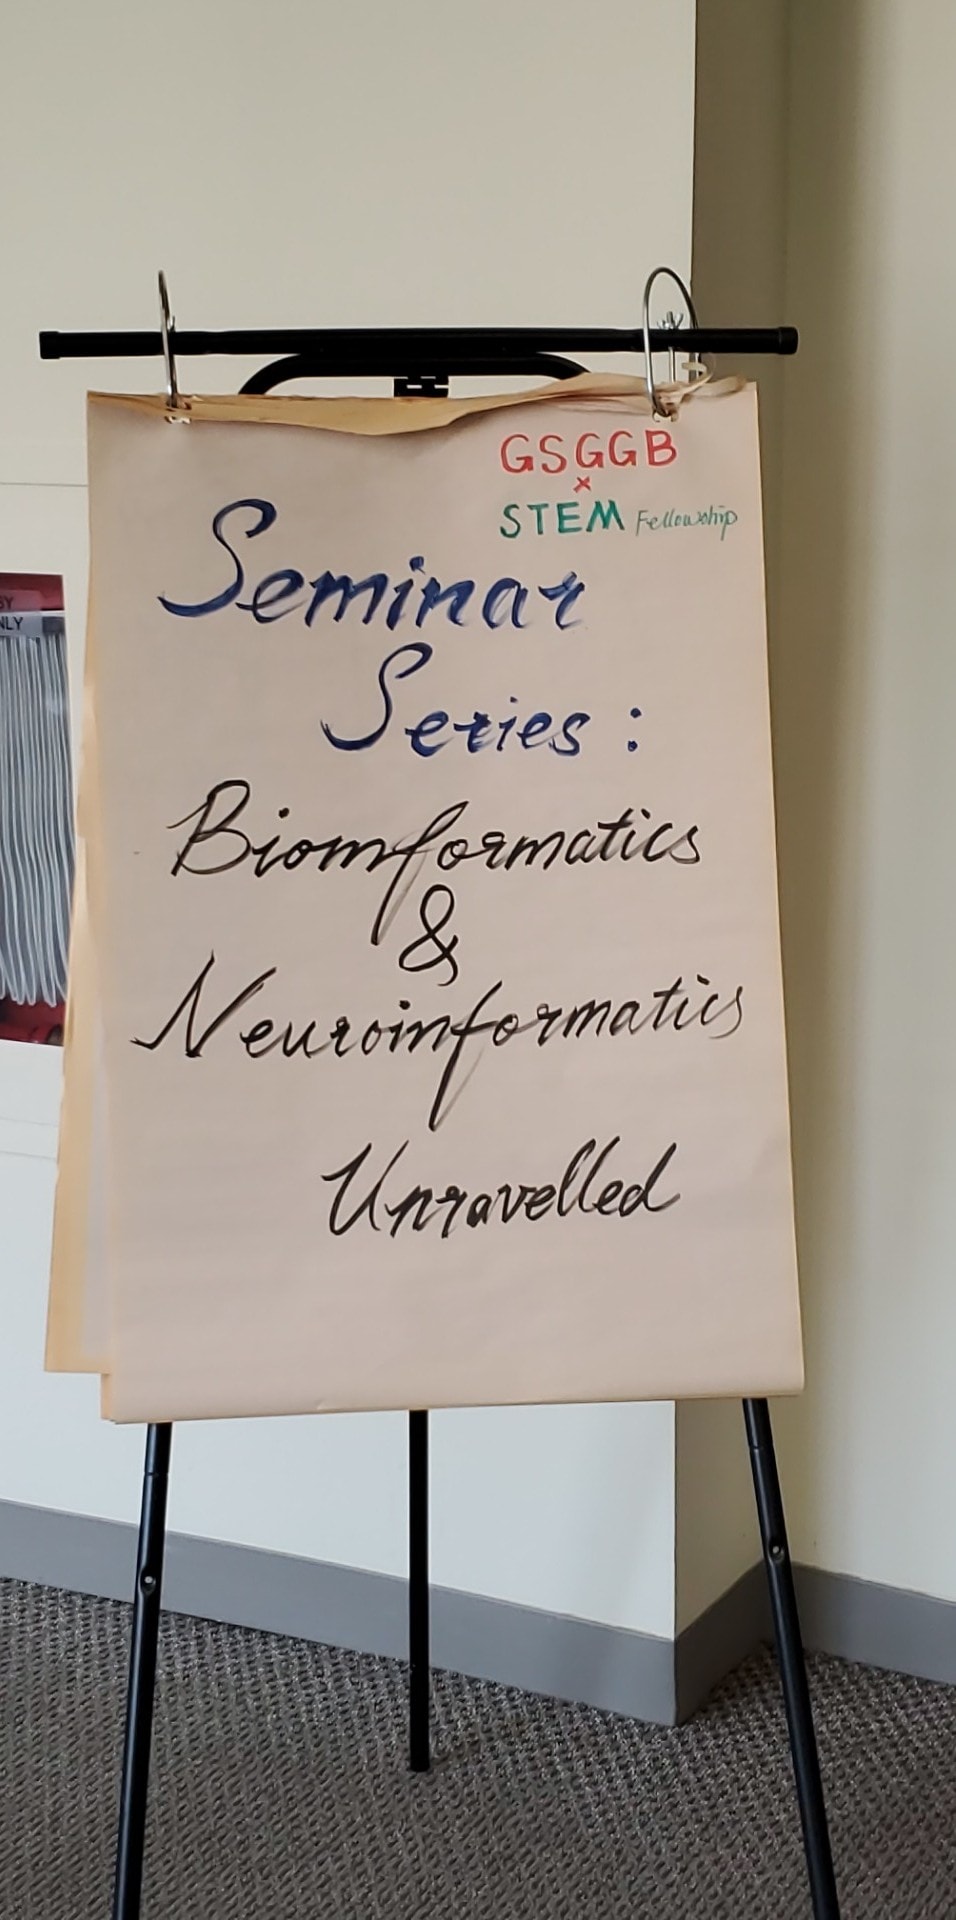 GSGGB
x
STEM Fellowship
Seminar
Series:
Bioinformatics
&
Neuroinformatics
Unravelled
NLY